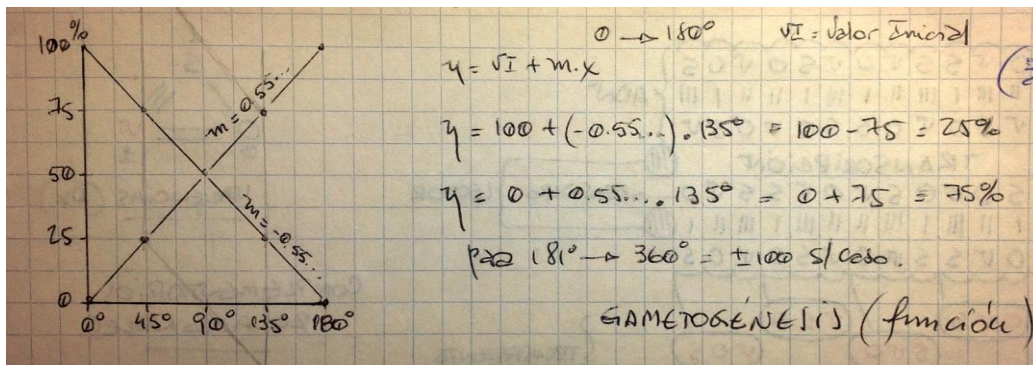 100%
75
50
25
0
0° 45° 90° 135° 180°
m=0.55...
m=-0.55...
0 → 180° VI = Valor Inicial
y = VI + m.x
y = 100 + (-0.55...) . 135° = 100 - 75 = 25%
y = 0 + 0.55... . 135° = 0 + 75 = 75%
para 181° → 360° = ±100 s/caso.
GAMETOGÉNESIS (función)
TRANSCRIPCIÓN